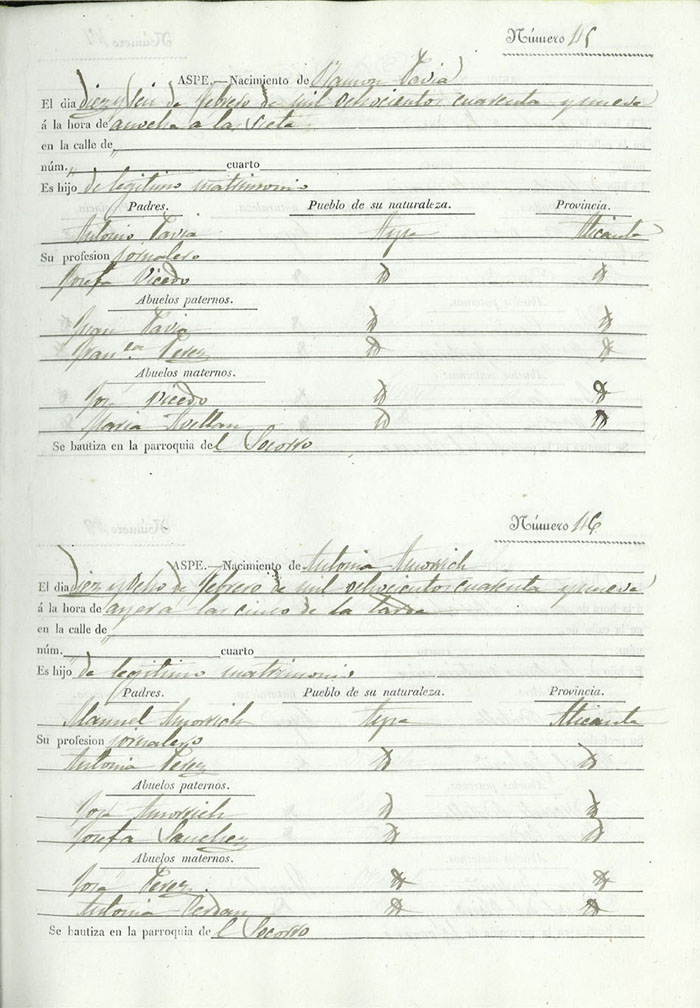 Número 45
ASPE.—Nacimiento de Ramon Pavia
El dia diez y seis de febrero de mil ochocientos cuarenta y nueve
á la hora de anoche a las siete
en la calle de
núm. cuarto
Es hijo de legitimo matrimonio
Padres. Pueblo de su naturaleza. Provincia.
Antonio Pavia Aspe Alicante
Su profesion jornalero
Josefa Vicedo
Abuelos paternos.
Juan Pavia
Fran.ca Perez
Abuelos maternos.
José Vicedo
Maria
Se bautiza en la parroquia del Socorro
Número 46
ASPE.—Nacimiento de Antonia
El dia diez y ocho de febrero de mil ochocientos cuarenta y nueve
á la hora de ayer a las cinco de la tarde
en la calle de
núm. cuarto
Es hijo de legitimo matrimonio
Padres. Pueblo de su naturaleza. Provincia.
Manuel Aspe Alicante
Su profesion jornalero
Antonia Perez
Abuelos paternos.
José
Josefa Sanchez
Abuelos maternos.
José Perez
Antonia
Se bautiza en la parroquia de l Socorro